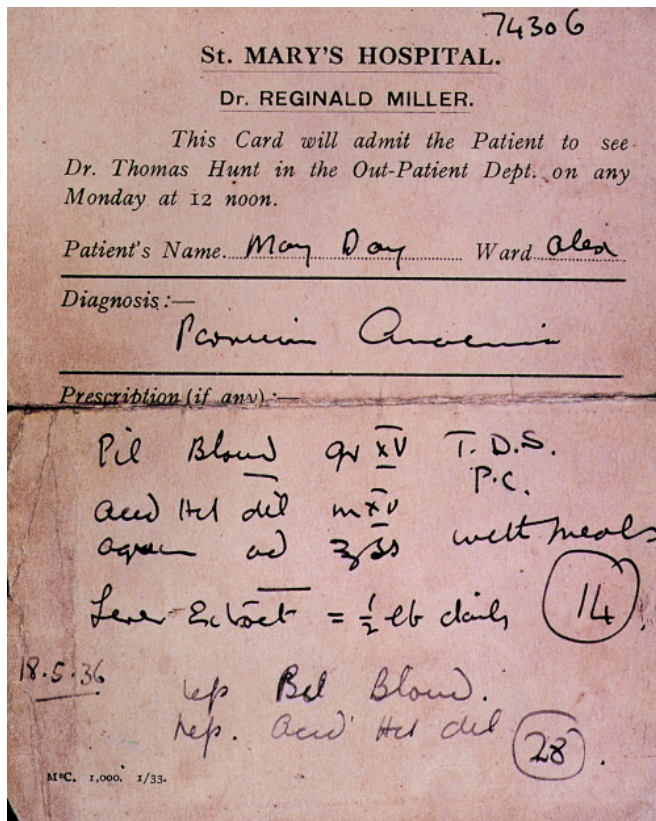 74306
St. MARY'S HOSPITAL.
Dr. REGINALD MILLER.
This Card will admit the Patient to see
Dr. Thomas Hunt in the Out-Patient Dept. on any
Monday at 12 noon.
Patient's Name. May Day Ward Alex
Diagnosis:—
Anaemia
Prescription (if any):—
Pil Blaud gr XV T.D.S.
P.C.
Acid Hcl dil m XV
aquam ad ʒss with meals
Liver Extract = ½ lb daily 14
18.5.36 rep Pil Blaud.
rep. Acid Hcl dil 28
McC. 1,000. 1/33.